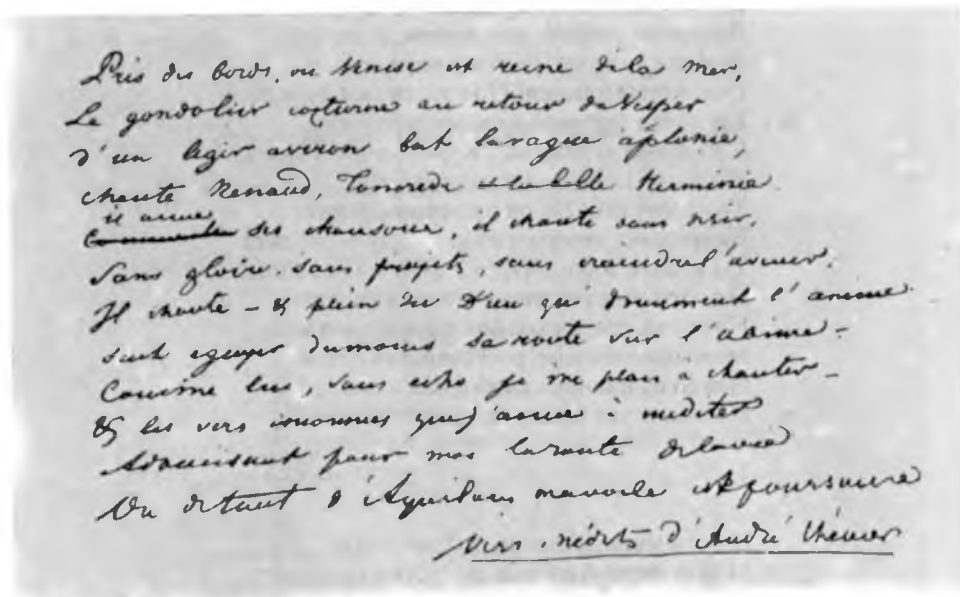 Près des bords, ou Venise est reine de la mer,
Le gondolier nocturne au retour de Vesper
d'un leger aviron bat la vague aplanie,
chante Renaud, Tancrede et la belle Herminie.
il aime
ses chansons, il chante sans desir,
sans gloire. sans projets, sans craindre l'avenir.
Il chante - & plein du Dieu qui doucement l'anime
sait egayer du moins sa route sur l'abime -
Comme lui, sans echo je me plais a chanter -
& les vers inconnus que j'aime à mediter
Adoucissent pour moi la route de la vie
Ou de tant d'Aquilons ma voile est poursuivie
Vers inédits d'André Chénier